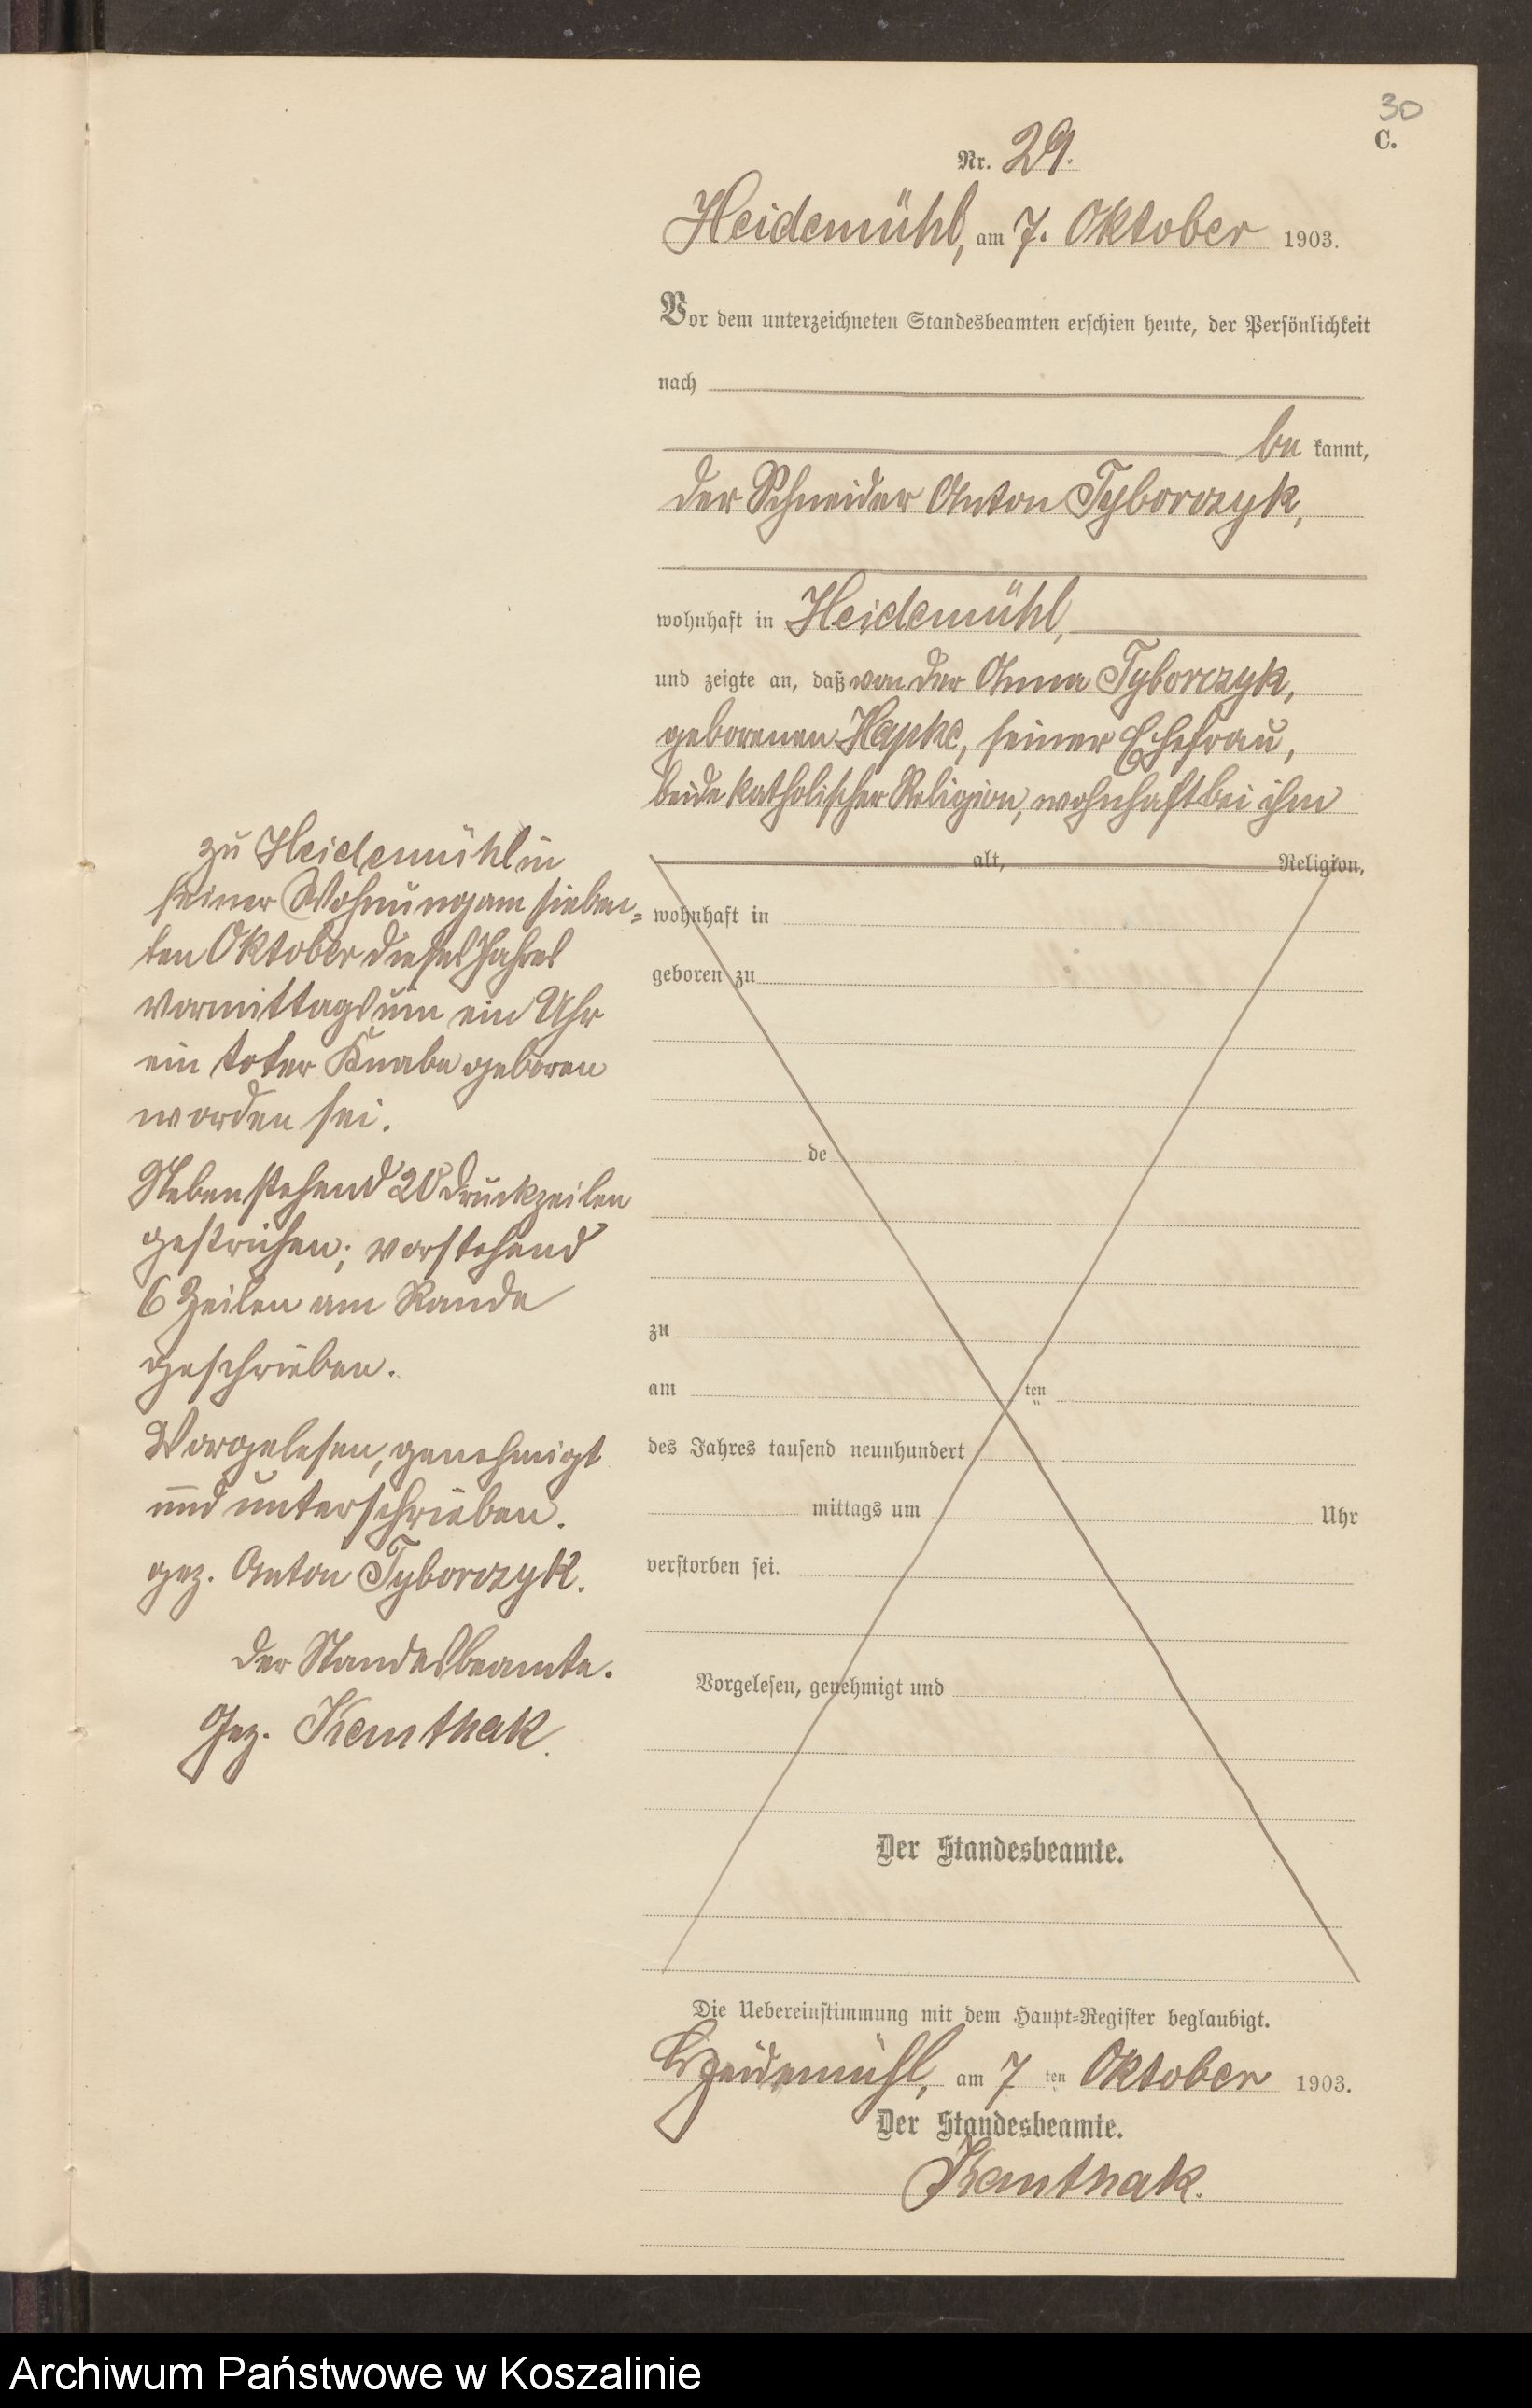 30
C.
Nr. 29.
Heidemühl, am 7. Oktober 1903.
Vor dem unterzeichneten Standesbeamten erschien heute, der Persönlichkeit
nach
be kannt,
der Schneider Anton Tyborczyk,
wohnhaft in Heidemühl,
und zeigte an, daß von der Anna Tyborczyk,
geborenen Hapke, seiner Ehefrau,
beide katholischer Religion, wohnhaft bei ihm
zu Heidemühl in
seiner Wohnung am sieben=
ten Oktober dieses Jahres
vormittags um ein Uhr
ein toter Knabe geboren
worden sei.
Nebenstehend 20 Druckzeilen
gestrichen; vorstehend
6 Zeilen am Rande
geschrieben.
Vorgelesen, genehmigt
und unterschrieben.
gez. Anton Tyborczyk.
Der Standesbeamte.
Gez. Kanthak.
alt, Religion,
wohnhaft in
geboren zu
de
zu
am ten
des Jahres tausend neunhundert
mittags um Uhr
verstorben sei.
Vorgelesen, genehmigt und
Der Standesbeamte.
Die Uebereinstimmung mit dem Haupt=Register beglaubigt.
Heidemühl, am 7 ten Oktober 1903.
Der Standesbeamte.
Kanthak.
Archiwum Państwowe w Koszalinie